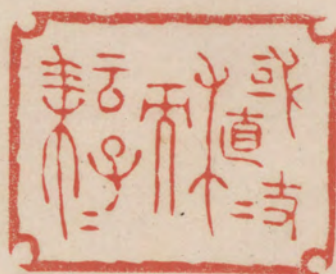 或植杖
而
耘耔